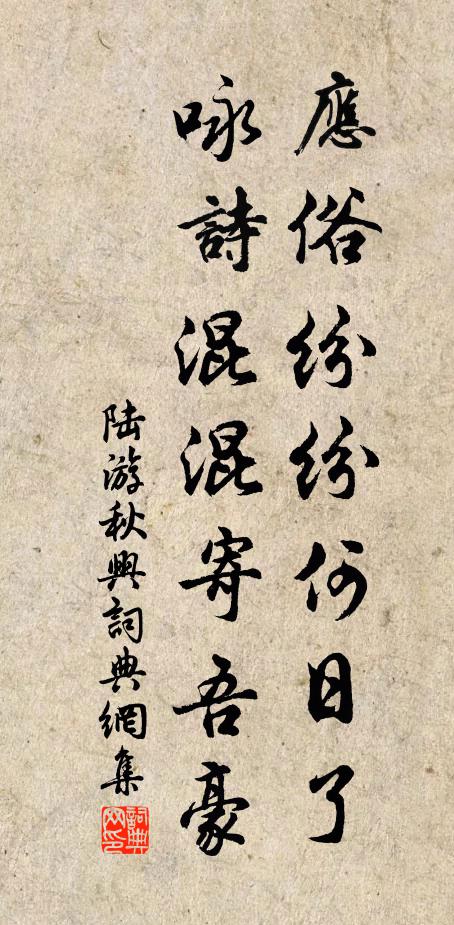 應俗紛紛何日了
咏詩混混寄吾豪
陆游秋興詞典網集
詞典网印